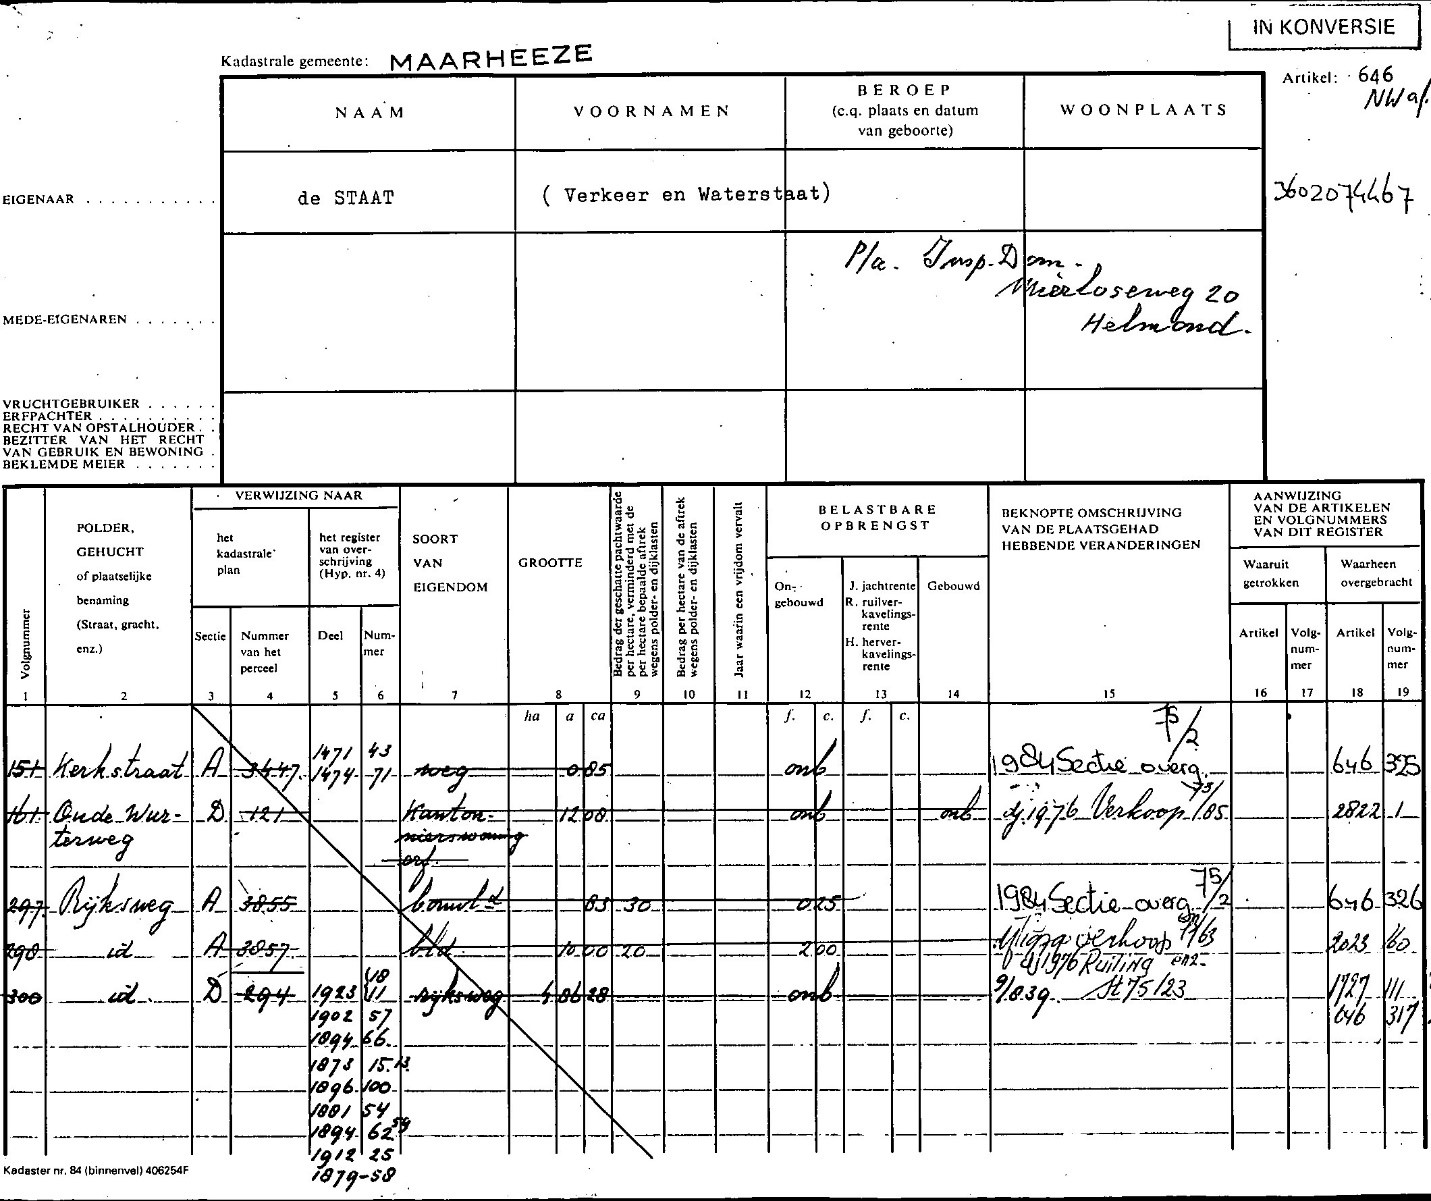 IN KONVERSIE
Kadastrale gemeente: MAARHEEZE
Artikel: 646
NAAM
VOORNAMEN
BEROEP
(c.q. plaats en datum
van geboorte)
WOONPLAATS
EIGENAAR
de STAAT
( Verkeer en Waterstaat)
3602074467
P/a. Insp. Dom.
Mierloseweg 20
Helmond.
MEDE-EIGENAREN
VRUCHTGEBRUIKER
ERFPACHTER
RECHT VAN OPSTALHOUDER
BEZITTER VAN HET RECHT
VAN GEBRUIK EN BEWONING
BEKLEMDE MEIER
Volgnummer
POLDER,
GEHUCHT
of plaatselijke
benaming
(Straat, gracht,
enz.)
VERWIJZING NAAR
het
kadastrale
plan
het register
van over-
schrijving
(Hyp. nr. 4)
Sectie
Nummer
van het
perceel
Deel
Num-
mer
SOORT
VAN
EIGENDOM
GROOTTE
Bedrag der geschatte pachtwaarde
per hectare, verminderd met de
per hectare bepaalde aftrek
wegens polder- en dijklasten
Bedrag per hectare van de aftrek
wegens polder- en dijklasten
Jaar waarin een vrijdom vervalt
BELASTBARE
OPBRENGST
On-
gebouwd
J. jachtrente
R. ruilver-
kavelings-
rente
H. herver-
kavelings-
rente
Gebouwd
BEKNOPTE OMSCHRIJVING
VAN DE PLAATSGEHAD
HEBBENDE VERANDERINGEN
AANWIJZING
VAN DE ARTIKELEN
EN VOLGNUMMERS
VAN DIT REGISTER
Waaruit
getrokken
Waarheen
overgebracht
Artikel
Volg-
num-
mer
Artikel
Volg-
num-
mer
1 2 3 4 5 6 7 8 9 10 11 12 13 14 15 16 17 18 19
ha a ca f. c. f. c.
75/2
1471 43
151 Kerkstraat A 3447 1474 71 weg 0 85 onb 1984 Sectie overg. 646 325
75/
161 Oude Wur- D 121 Kanton- 12 08 onb onb dj. 1976 Verkoop 85 2822 1
terweg nierswoning
erf.
75/2
297 Rijksweg A 3855 bouwld 83 30 0 25 1984 Sectie overg. 646 326
298 id A 3857 bld 10 00 20 2 00 verkoop 63 2023 60
dj 1976 Ruiling
118
300 id. D 294 1923 111 rijksweg 4 86 28 onb 9/839 St 75/23 1727 111
1902 57 646 317
1894 66
1873 15.13
1896 100
1881 54
1894 62 59
1912 25
1879-58
Kadaster nr. 84 (binnenvel) 406254F